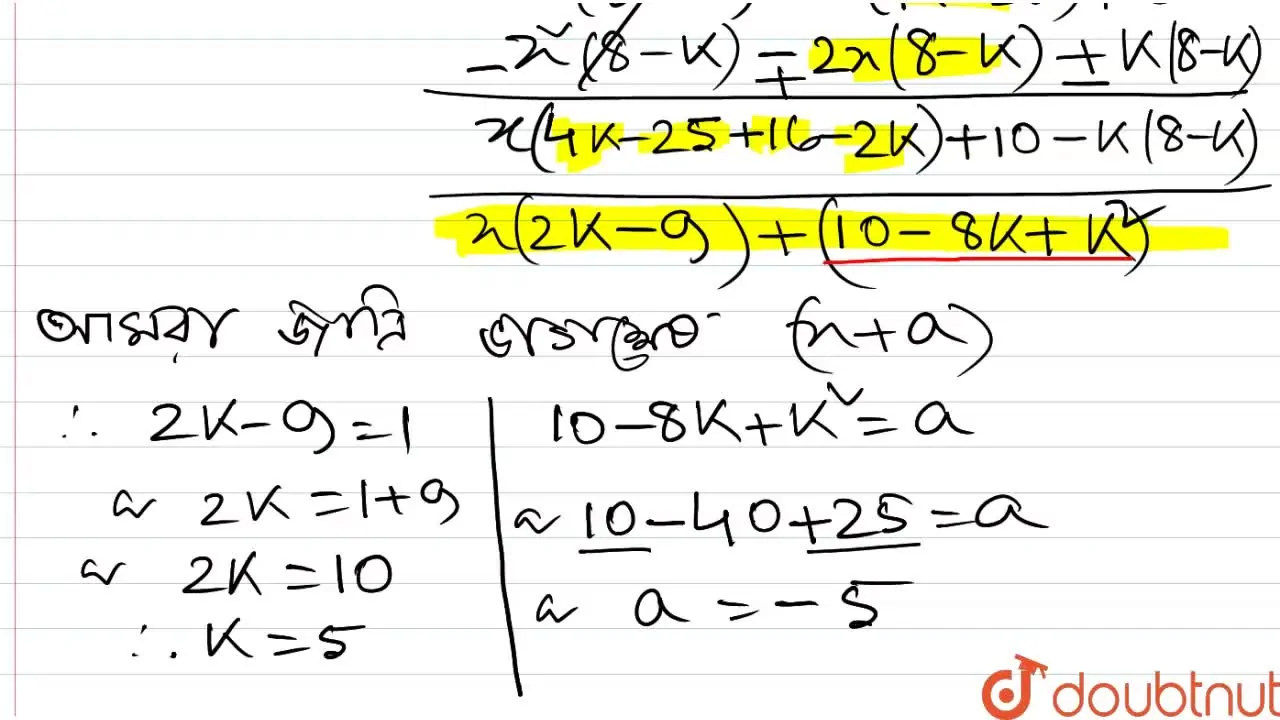 - x²(8-K) ∓ 2x(8-K) ± K(8-K)
x(4K-25+16-2K)+10-K(8-K)
x(2K-9)+(10-8K+K²)
আমরা জানি ভাগশেষ (x+a)
∴ 2K-9=1
বা 2K=1+9
বা 2K=10
∴ K=5
10-8K+K²=a
বা 10-40+25=a
বা a=-5
doubtnut